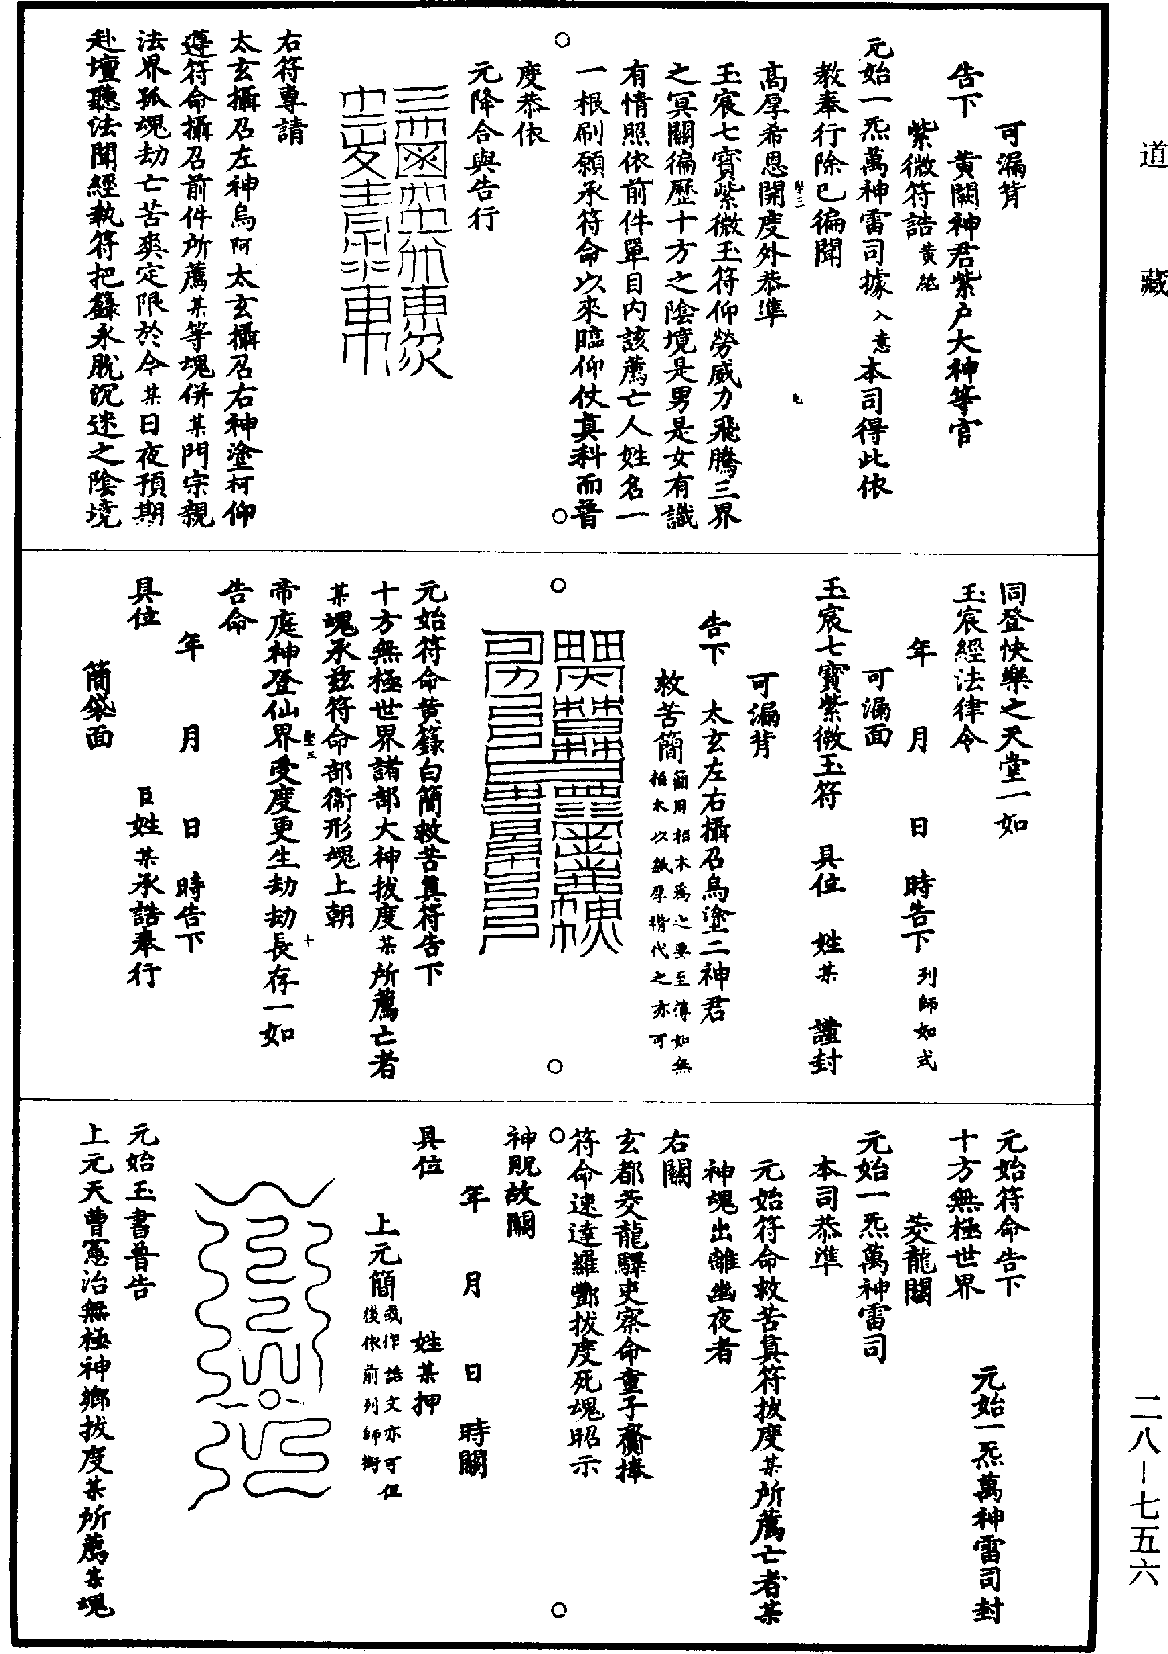 道藏
可漏背
告下　黃闕神君紫戶大神等官
紫微符誥黃紙
元始一炁萬神雷司據入意本司得此依
教奉行除已徧聞
高厚希恩開度外恭準
玉宸七寶紫微玉符仰勞威力飛騰三界
之冥關徧歷十方之陰境是男是女有識
有情照依前件單目內該薦亡人姓名一
一根刷願承符命以來臨仰仗真科而普
度恭依
元降合與告行
右符專請
太玄攝召左神烏阿太玄攝召右神塗柯仰
遵符命攝召前件所薦某等魂併某門宗親
法界孤魂劫亡苦爽定限於今某日夜預期
赴壇聽法聞經執符把籙永脫沉迷之陰境
同登快樂之天堂一如
玉宸經法律令
年　月　日　時告下列師如式
可漏面
玉宸七寶紫微玉符　具位　姓某　謹封
可漏背
告下　太玄左右攝召烏塗二神君
救苦簡簡用梧木為之要至薄如無
梧木以紙厚褙代之亦可
元始符命黃籙白簡救苦真符告下
十方無極世界諸部大神拔度某所薦亡者
某魂承茲符命部衛形魂上朝
帝庭神登仙界受度更生劫劫長存一如
告命
年　月　日　時告下
具位　臣姓某承誥奉行
簡袋面
元始符命告下
十方無極世界　元始一炁萬神雷司封
茭龍關
元始一炁萬神雷司
本司恭準
元始符命救苦真符拔度某所薦亡者某
神魂出離幽夜者
右關
玄都茭龍驛吏察命童子齎捧
符命速達羅酆拔度死魂昭示
神貺故關
年　月　日　時關
具位　姓某押
上元簡或作誥文亦可但
後依前列師銜
元始玉書普告
上元天曹憲治無極神鄉拔度某所薦某魂
二八-七五六